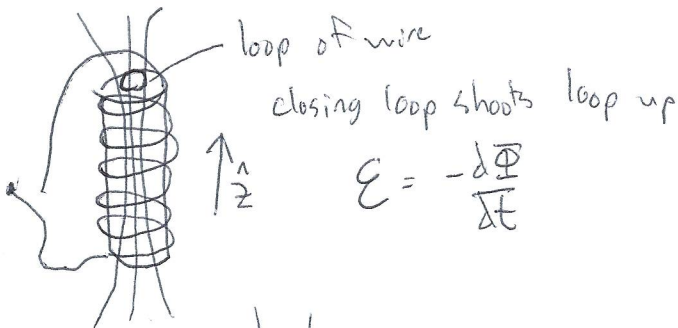 loop of wire
closing loop shoots loop up
ẑ
ℰ = -dΦ/dt